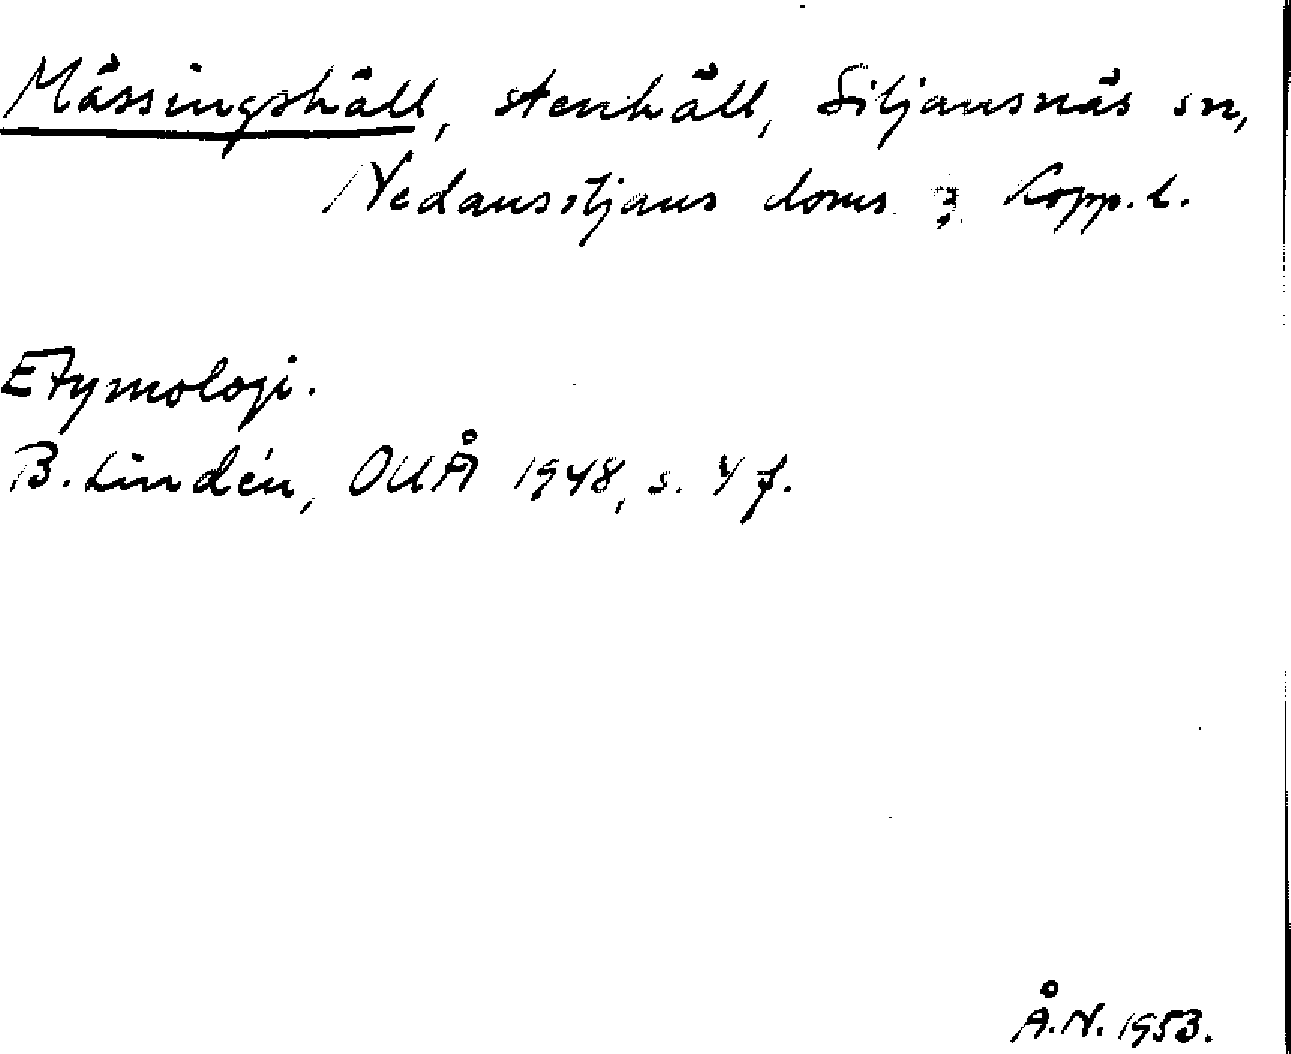 Mässingshäll, stenhäll, Siljansnäs sn,
Nedansiljans doms. ? Kopp. l.
Etymologi.
B. Lindén, OUÅ 1948, s. 4 f.
Å.N. 1953.